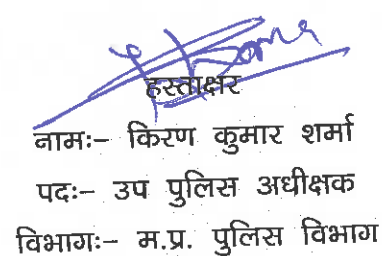 हस्ताक्षर
नामः– किरण कुमार शर्मा
पदः– उप पुलिस अधीक्षक
विभागः– म.प्र. पुलिस विभाग